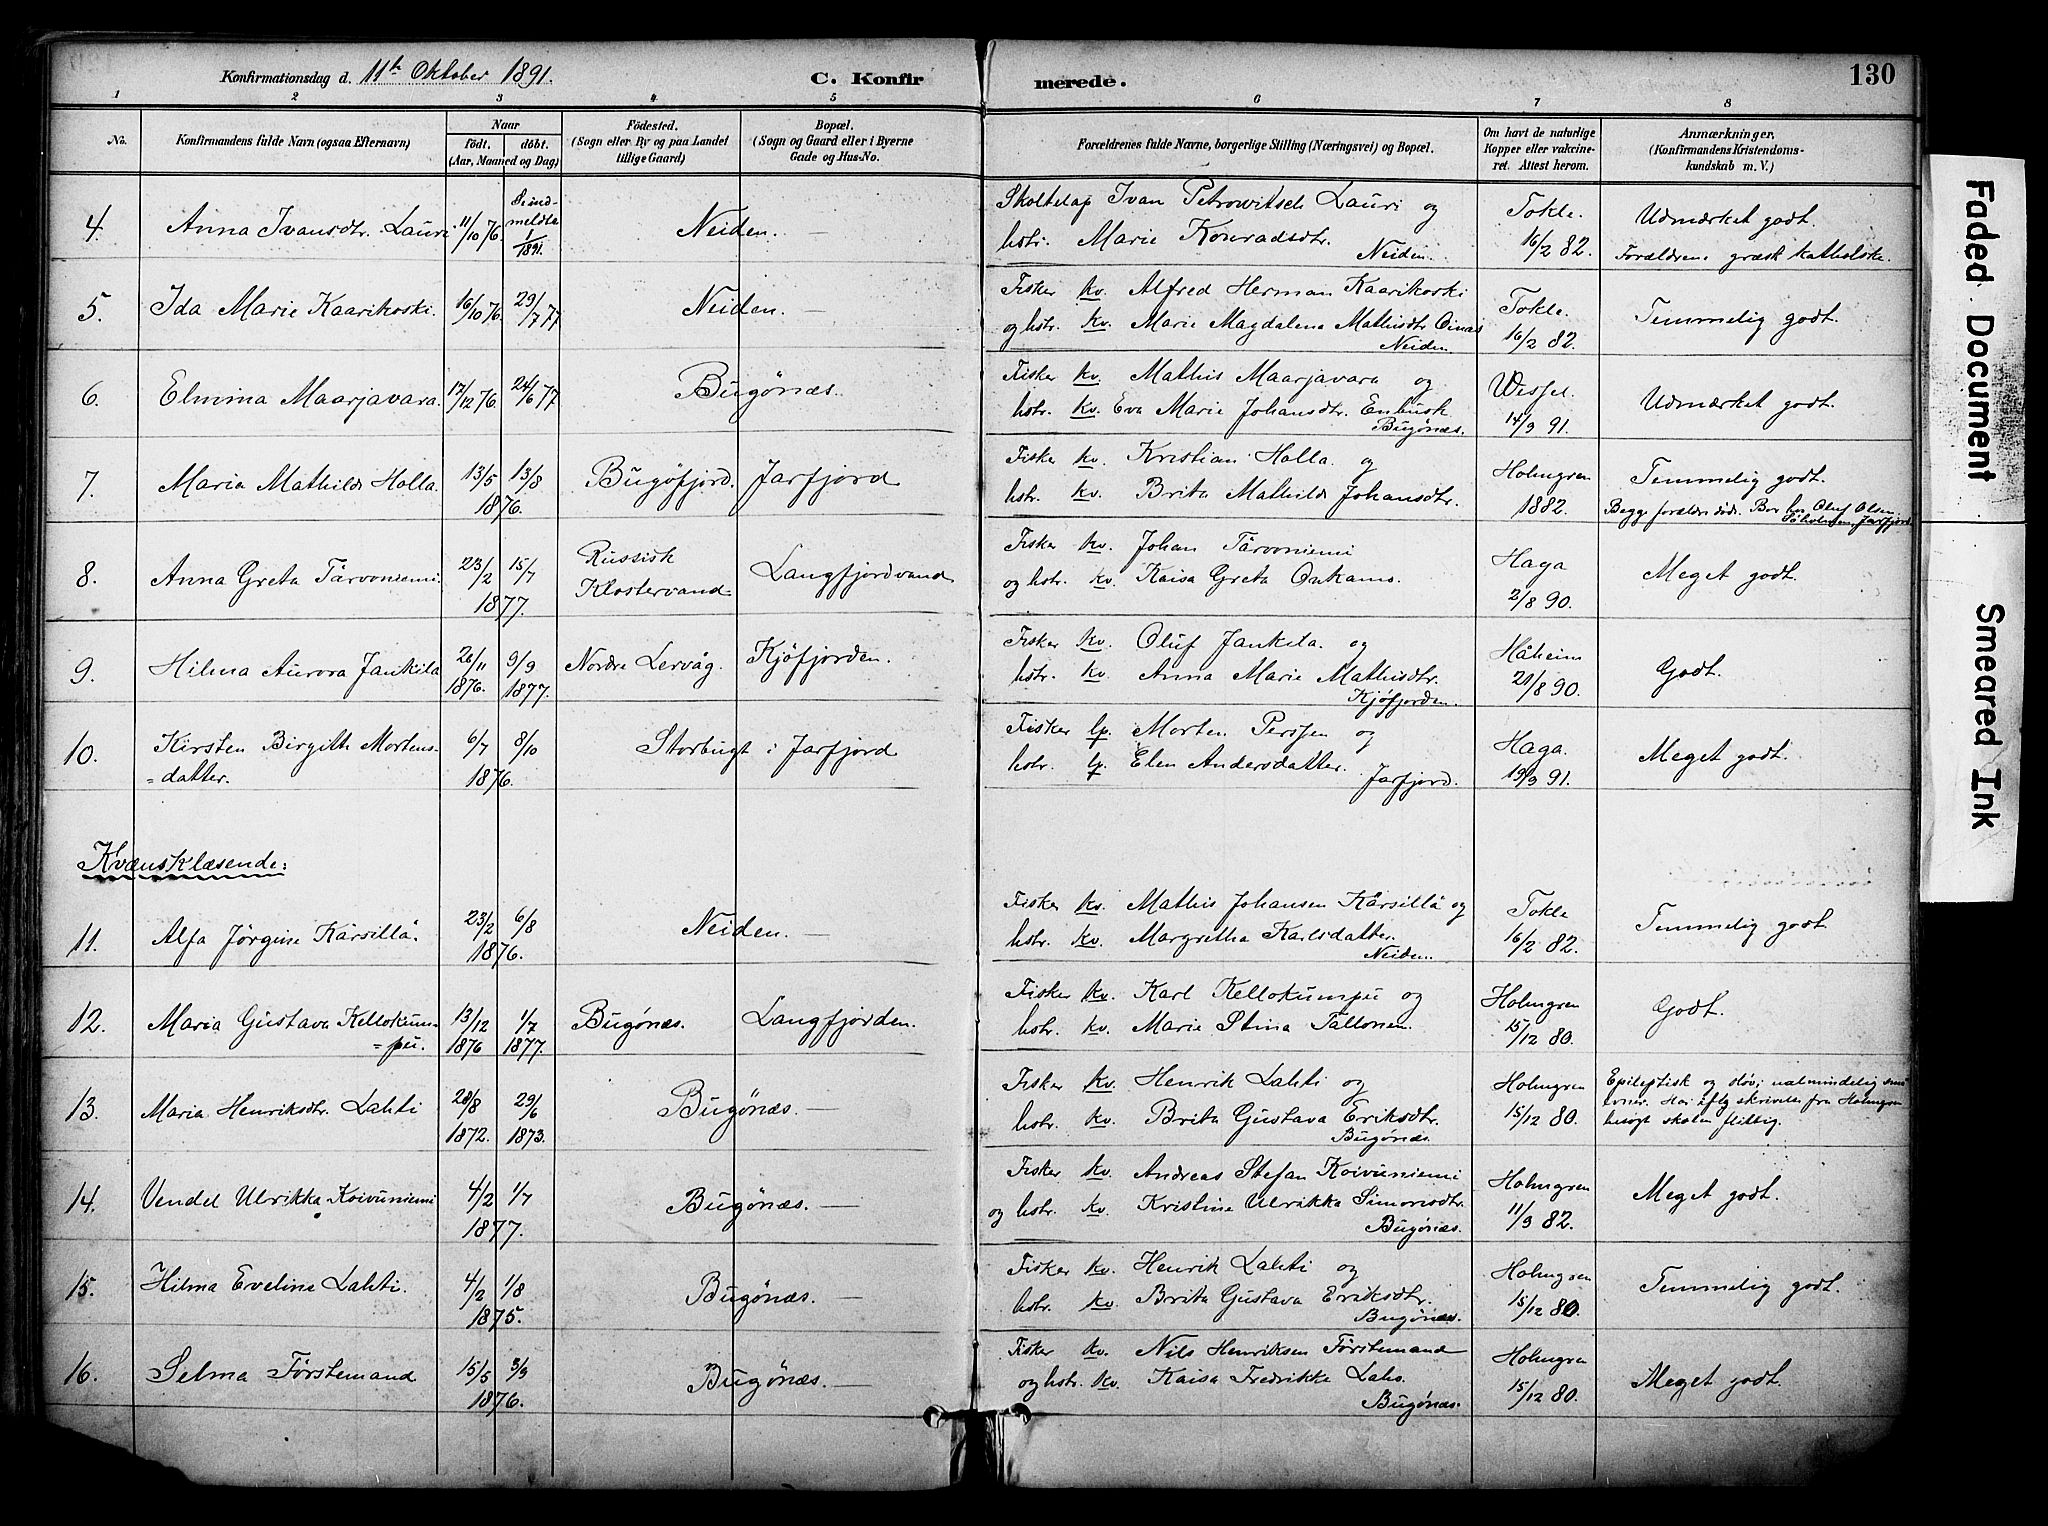 Konfirmationsdag d. 11th Oktober 1891.
C. Konfir merede. 130
1 2 3 4 5 6 7 8
No. Konfirmandens fulde Navn (ogsaa Efternavn) Naar födt. döbt. (Aar, Maaned og Dag) Födested. (Sogn eller By og paa Landet tillige Gaard) Bopæl. (Sogn og Gaard eller i Byerne Gade og Hus-No. Forældrenes fulde Navne, borgerlige Stilling (Næringsvei) og Bopæl. Om havt de naturlige Kopper eller vakcineret. Attest herom. Anmærkninger, (Konfirmandens Kristendomskundskab m. V.)
4. Anna Ivansdtr. Lauri 11/10 76. meldta 1/1891. Neiden. — Skoltelap Ivan Petrowitsch Lauri og Tokle. Udmærket godt.
hstr. Marie Konradsdtr. Neiden. 16/2 82. Forældrene græsk katholske.
5. Ida Marie Kaarikoski. 16/10 76. 29/7 77 Neiden. — Fisker kv. Alfred Herman Kaarikoski Tokle. Temmelig godt.
og hstr. kv. Marie Magdalena Mathisdtr Oinas Neiden. 16/2 82.
6. Elmima Maarjavara. 17/12 76. 24/6 77 Bugönæs. Fisker kv. Mathis Maarjavara og Wessel. Udmærket godt.
hstr. kv. Eva Marie Johansdtr. Enbusk Bugönæs. 14/9 91.
7. Maria Mathilde Holla. 13/5 13/8 1876. Bugöfjord. Jarfjord Fisker kv. Kristian Holla. og Holmgren Temmelig godt.
hstr. kv. Brita Mathilde Johansdtr. 1882. Begge forældre döde. Bor hos Oluf Olsen Söholmen, Jarfjord.
8. Anna Greta Tärvoniemi. 23/2 15/7 1877. Russisk Klostervand Langfjordvand Fisker kv. Johan Tärvoniemi Haga Meget godt.
og hstr. kv. Kaisa Greta Onkamo. 2/8 90.
9. Hilma Aurora Jankila 26/11 1876. 9/9 1877. Nordre Lervåg. Kjöfjorden. Fisker kv. Oluf Jankila. og Håheim Godt.
hstr. kv. Anna Marie Mathisdtr. Kjöfjorden. 21/8 90.
10. Kirsten Birgith Mortens- 6/7 8/10 Storbugt i Jarfjord Fisker lp. Morten Perssen og Haga. Meget godt.
=datter. 1876. hstr. lp. Elen Andersdatter. Jarfjord. 19/9 91.
Kvænsklæsende:
11. Alfa Jörgine Kärsillä. 23/2 6/8 1876. Neiden. — Fisker kv. Mathis Johansen Kärsillä og Tokle Temmelig godt
hstr. kv. Margretha Karlsdatter. Neiden. 16/2 82.
12. Maria Gustava Kellokum= 13/12 1876 1/7 1877. Bugönæs. Langfjorden. Fisker kv. Karl Kellokumpu og Holmgren Godt.
=pu. hstr. kv. Marie Stina Tallonen. 15/12 80.
13. Maria Henriksdtr. Lahti 28/8 1872. 29/6 1873. Bugönæs. — Fisker kv. Henrik Lahti og Holmgren Epileptisk og döv; ualmindelig små
hstr. kv. Brita Gustava Eriksdtr. Bugönæs. 15/12 80. evner. Har iflg skrivelse fra Holmgren besögt skolen flittig.
14. Vendel Ulrikka Koivuniemi 4/2 1/7 1877. Bugönæs. — Fisker kv. Andreas Stefan Koivuniemi Holmgren Meget godt.
og hstr. kv. Kristine Ulrikka Simonsdtr. Bugönæs. 11/9 82.
15. Hilma Eveline Lahti. 4/2 1/8 1875. Bugönæs. — Fisker kv. Henrik Lahti og Holmgren Temmelig godt.
hstr. kv. Brita Gustava Eriksdtr. Bugönæs. 15/12 80.
16. Selma Förstemand 15/5 3/9 1876. Bugönæs. — Fisker kv. Nils Henriksen Förstemand Holmgren Meget godt.
og hstr. kv. Kaisa Fredrikke Lahs. Bugönæs. 15/12 80.
Faded Document
Smeared Ink